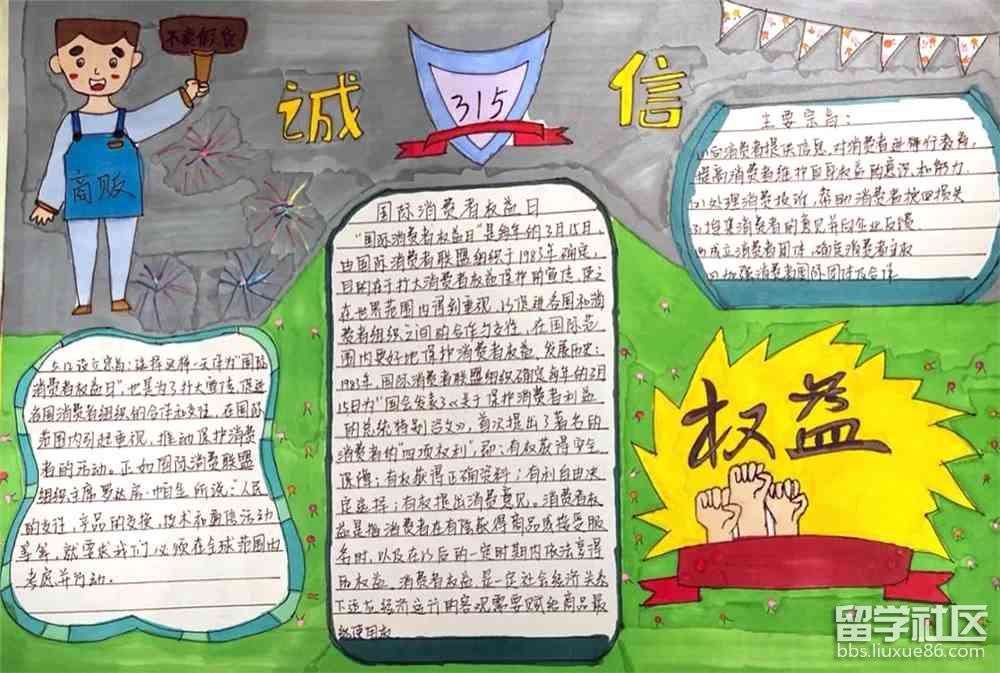 不卖假货
诚
315
信
商贩
主要宗旨：
(1)向消费者提供信息,对消费者进行教育,
提高消费者维护自身权益的意识和能力.
(2)处理消费投诉,帮助消费者挽回损失
(3)搜集消费者的意见并向企业反馈
(4)成立消费者团体,确定消费者主权
(5)加强消费者国际团体及合作
国际消费者权益日
"国际消费者权益日"是每年的3月15日,
由国际消费者联盟组织于1983年确定,
目的在于扩大消费者权益保护的宣传,使之
在世界范围内得到重视,以促进各国和消
费者组织之间的合作与交往,在国际范
围内更好地保护消费者权益、发展历史:
1983年,国际消费者联盟组织确定每年的3月
15日为"国会发表了《关于保护消费者利益
的总统特别咨文》,首次提出了著名的
消费者的"四项权利",即:有权获得安全
保障;有权获得正确资料;有利自由决
定选择;有权提出消费意见,消费者权
益是指消费者在有偿获得商品或接受服
务时,以及在以后的一定时期内依法享得
的权益,消费者权益,是一定社会经济关系
下适应经济运行的客观需要赋给商品最
终使用者.
3.15设立宗旨:选择这样一天作为"国际
消费者权益日",也是为了扩大宣传,促进
各国消费者组织的合作和交往,在国际
范围内引起重视,推动保护消费
者的活动。正如国际消费联盟
组织主席罗达房·帕生所说:"人民
的支付,产品的交换,技术和通信活动
等等,就要求我们必须在全球范围内
考虑并行动。
权益
留学社区
bbs.liuxue86.com